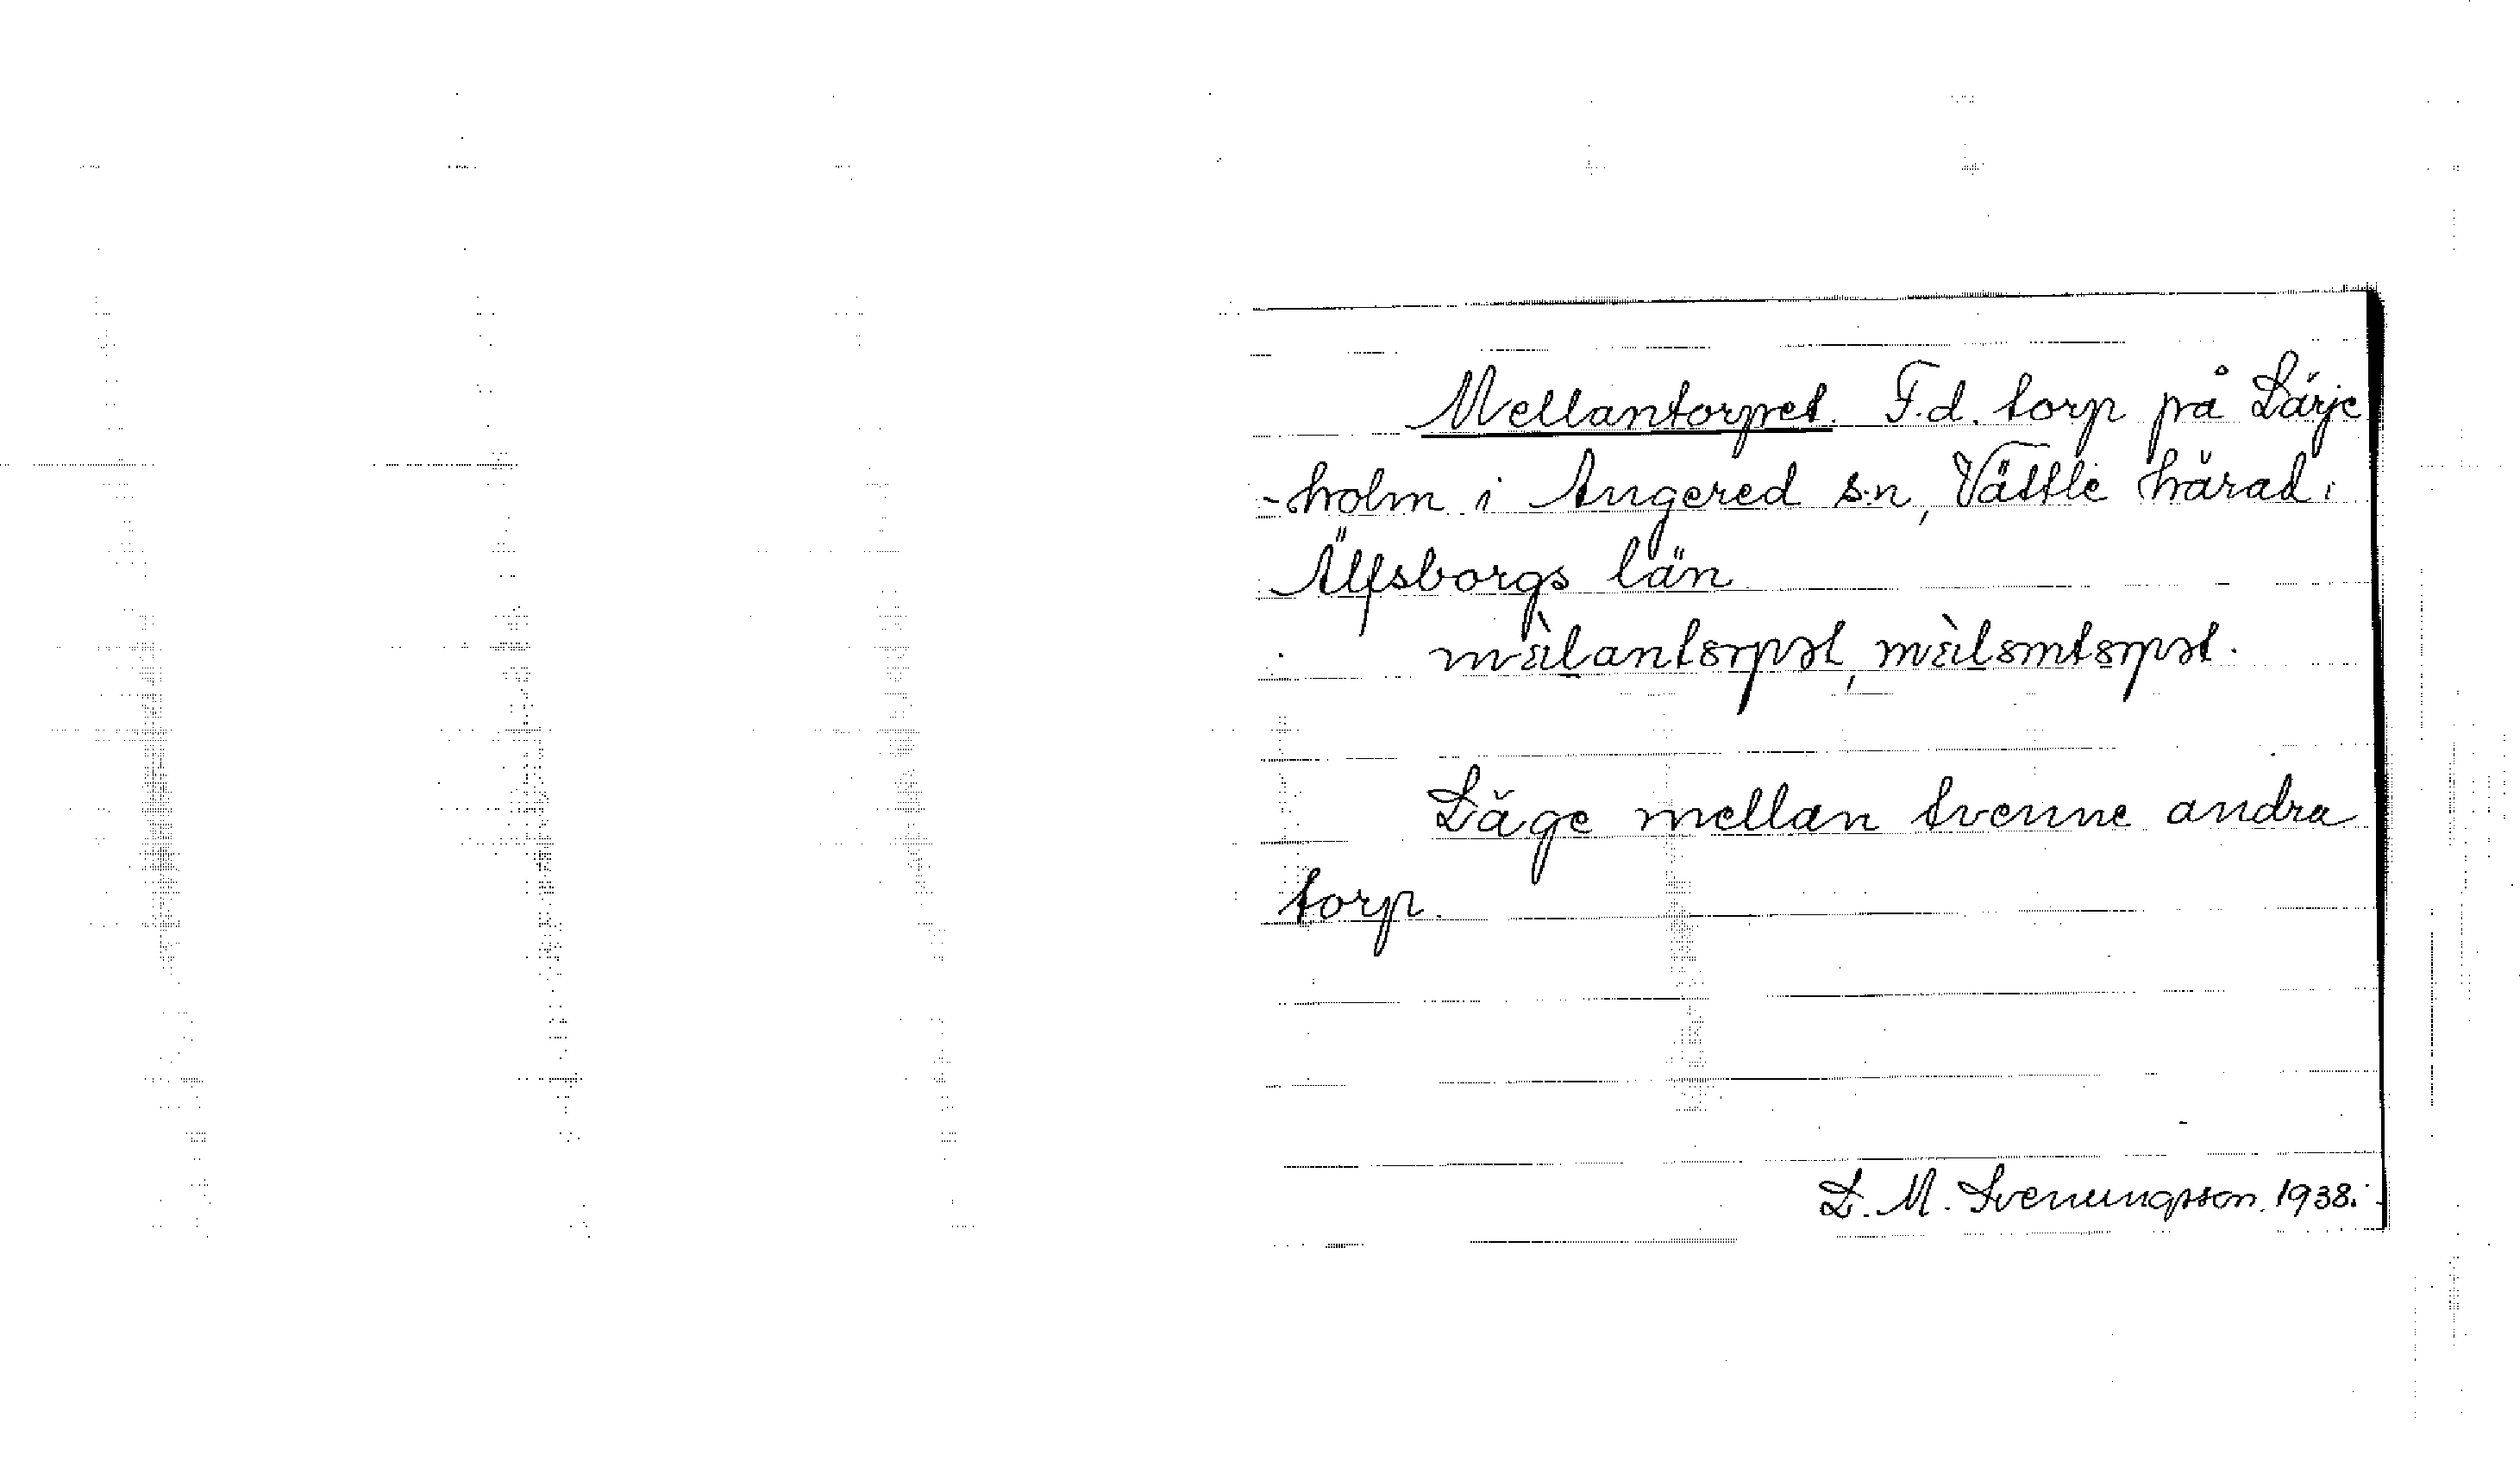 Mellantorpet. F.d. torp på Lärje
-holm i Angered s.n, Vättle härad i
Älfsborgs län
Läge mellan tvenne andra
torp.
L. M. Svenungsson. 1938.